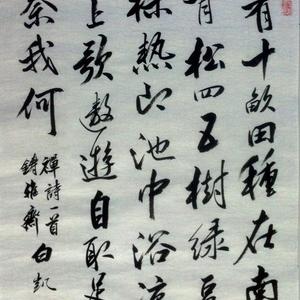 有十畝田種在南
青松四五樹綠豆
棵熱即池中浴涼
上歌遨遊自取足
奈我何
禪詩一首
鑄雅齋白凱